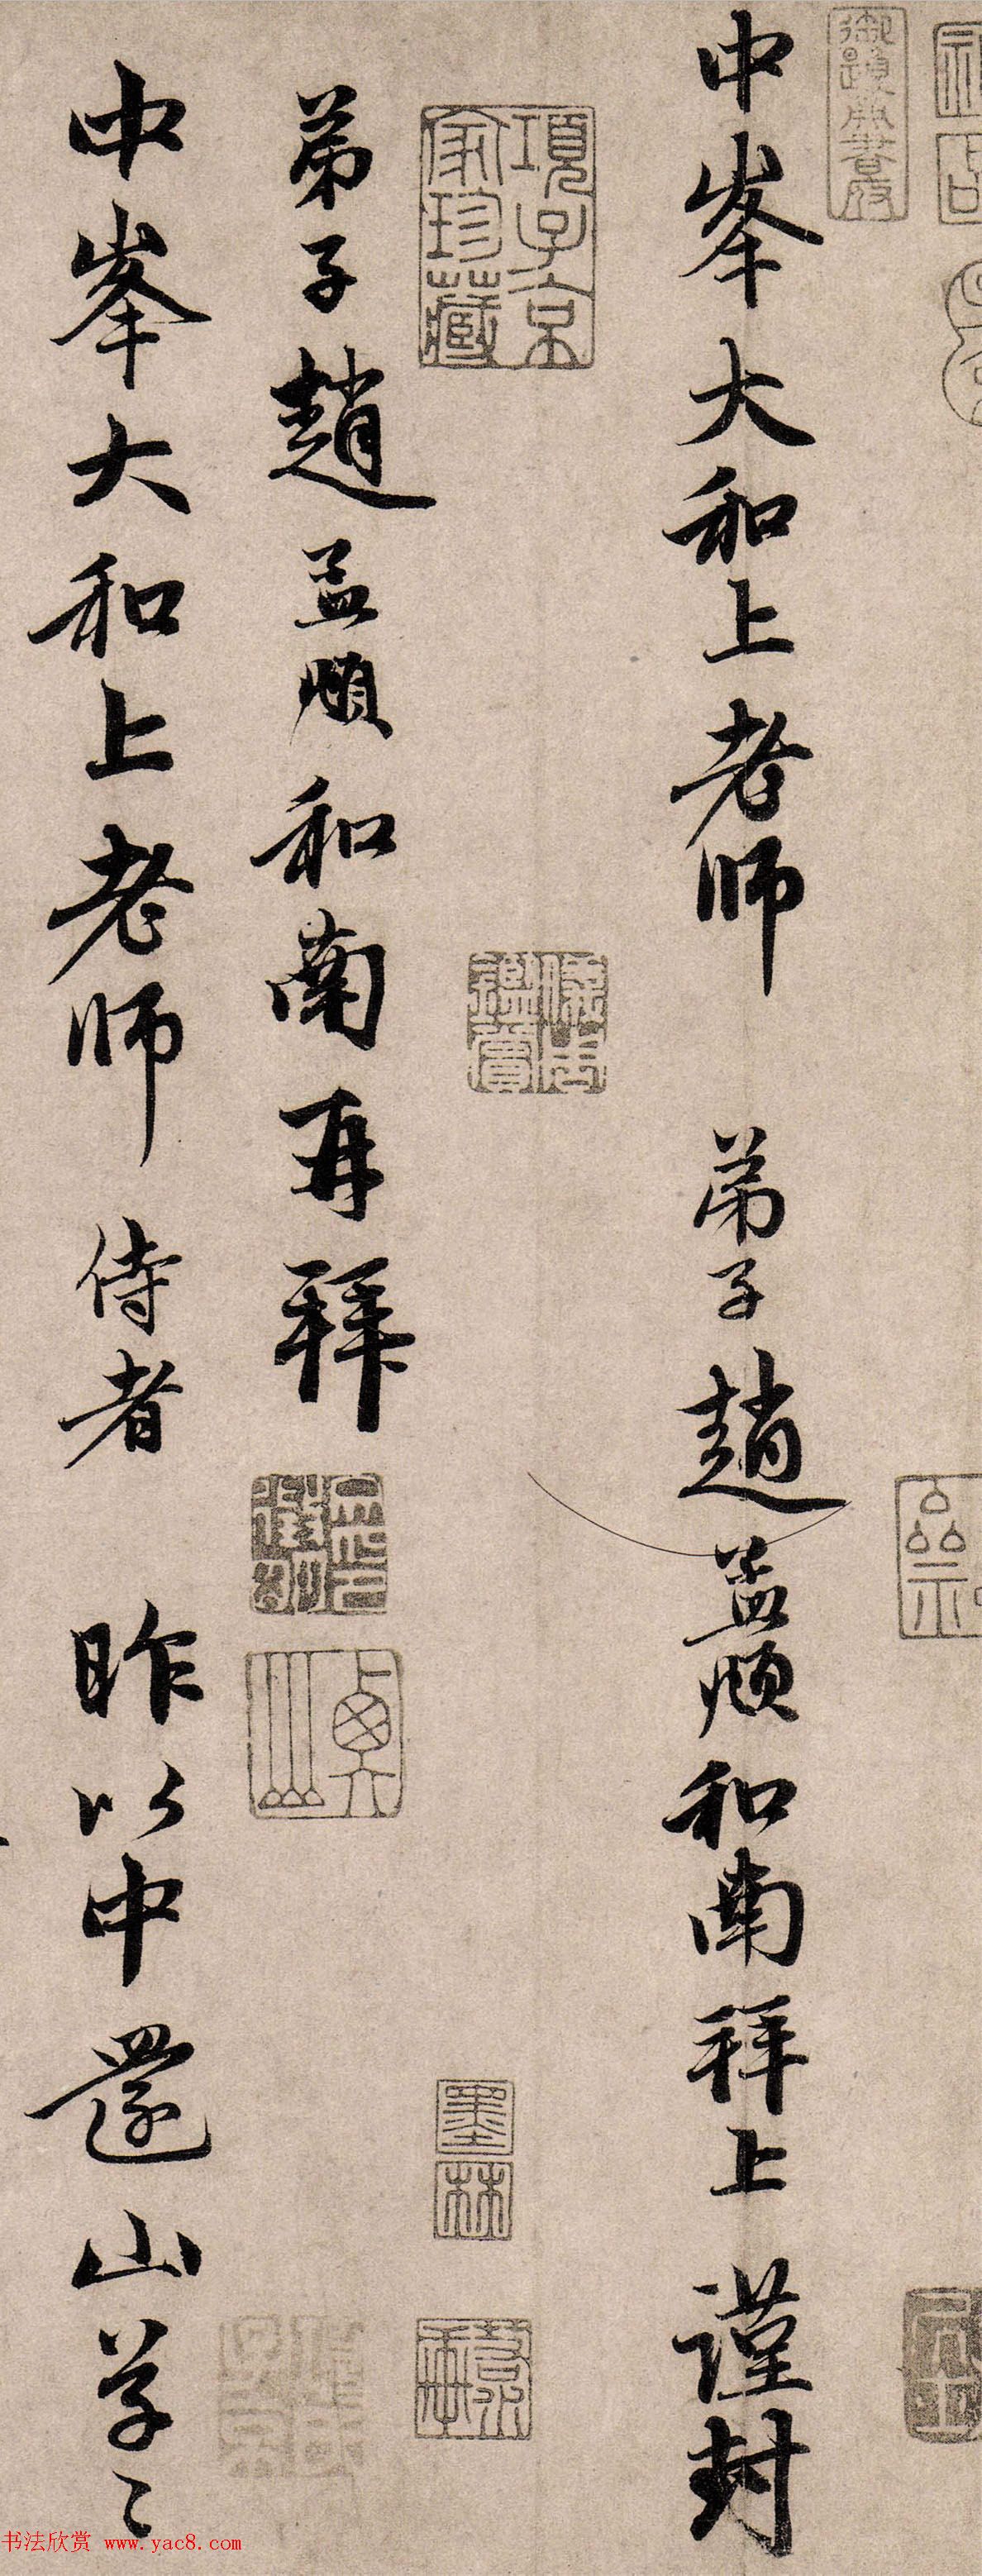 中峯大和上老師 弟子趙孟頫和南拜上 謹封
弟子趙孟頫和南再拜
中峯大和上老師侍者 昨以中還山草〻
項子京
家珍藏
墨林
書法欣赏 www.yac8.com